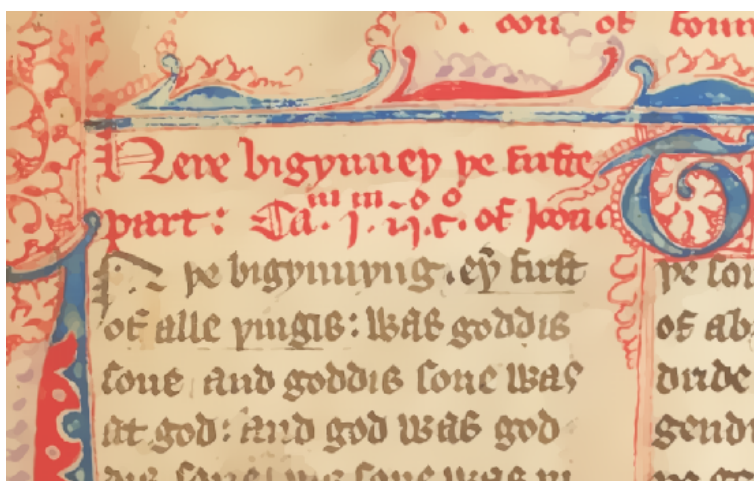 oon of four
Here bigynneþ þe firste
part: Ca.m j.m ij.o c.o of Joon
N þe bigynnyng. eþ̄ first
of alle þingis: was goddis
sone and goddis sone was
at god: and god was god
dis sone
þe son
of ab
gend